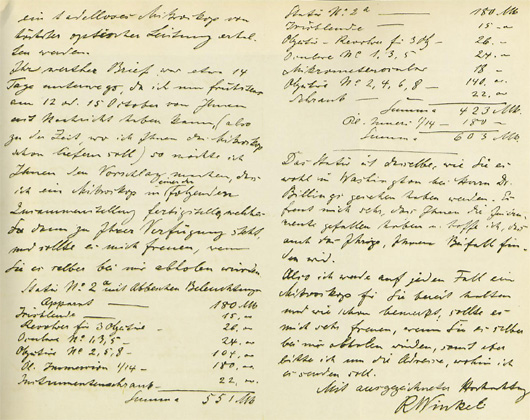 ein tadelloses Mikroskop von
höchster optischer Leistung erhal-
ten werden.
Ihr werther Brief war etwa 14
Tage unterwegs, da ich nun frühstens
am 12 od. 15 October von Ihnen
erst Nachricht haben kann, (also
zu der Zeit, wo ich Ihnen das Mikroskop
schon liefern soll) so möchte ich
Ihnen den Vorschlag machen, das
ich ein Mikroskop in folgender
Zusammenstellung fertigstelle, welches
Sie dann zu Ihrer Verfügung steht
und sollte es mich freuen, wenn
Sie es selber bei mir abholen würden.
Stativ No. 2a mit Abbeschen Beleuchtungs-
Apparat — 180 Mk
Irisblende — 15.
Revolver für 3 Objective — 26.
Oculare No. 1, 3, 5 — 24.
Objective No. 2, 5, 8 — 104.
Öl. Immersion 1/14 — 180.
Instrumentenschrank — 22.
Summa 551 Mk
Stativ No. 2a — 180 Mk
Irisblende — 15
Objectiv-Revolver für 3 Obj — 26.
Oculare No. 1, 3, 5 — 24.
Micrometerocular — 18
Objective No. 2, 4, 6, 8 — 140.
Schrank — 22.
Summa 423 Mk
Öl. Immers. 1/14 — 180
Summa 603 Mk
Das Stativ ist dasselbe, wie Sie es
wohl in Washington bei Herrn Dr.
Billings gesehen haben werden. Es
freut mich sehr, das Ihnen die Instru-
mente gefallen haben u. hoffe ich, das
auch das Ihrige, Ihren Beifall fin-
den wird.
Also ich werde auf jeden Fall ein
Mikroskop für Sie bereit halten
und wie schon bemerkt, sollte es
mich sehr freuen, wenn Sie es selber
bei mir abholen würden, sonst aber
bitte ich um die Adresse, wohin ich
es senden soll.
Mit ausgezeichneter Hochachtung
R Winkel